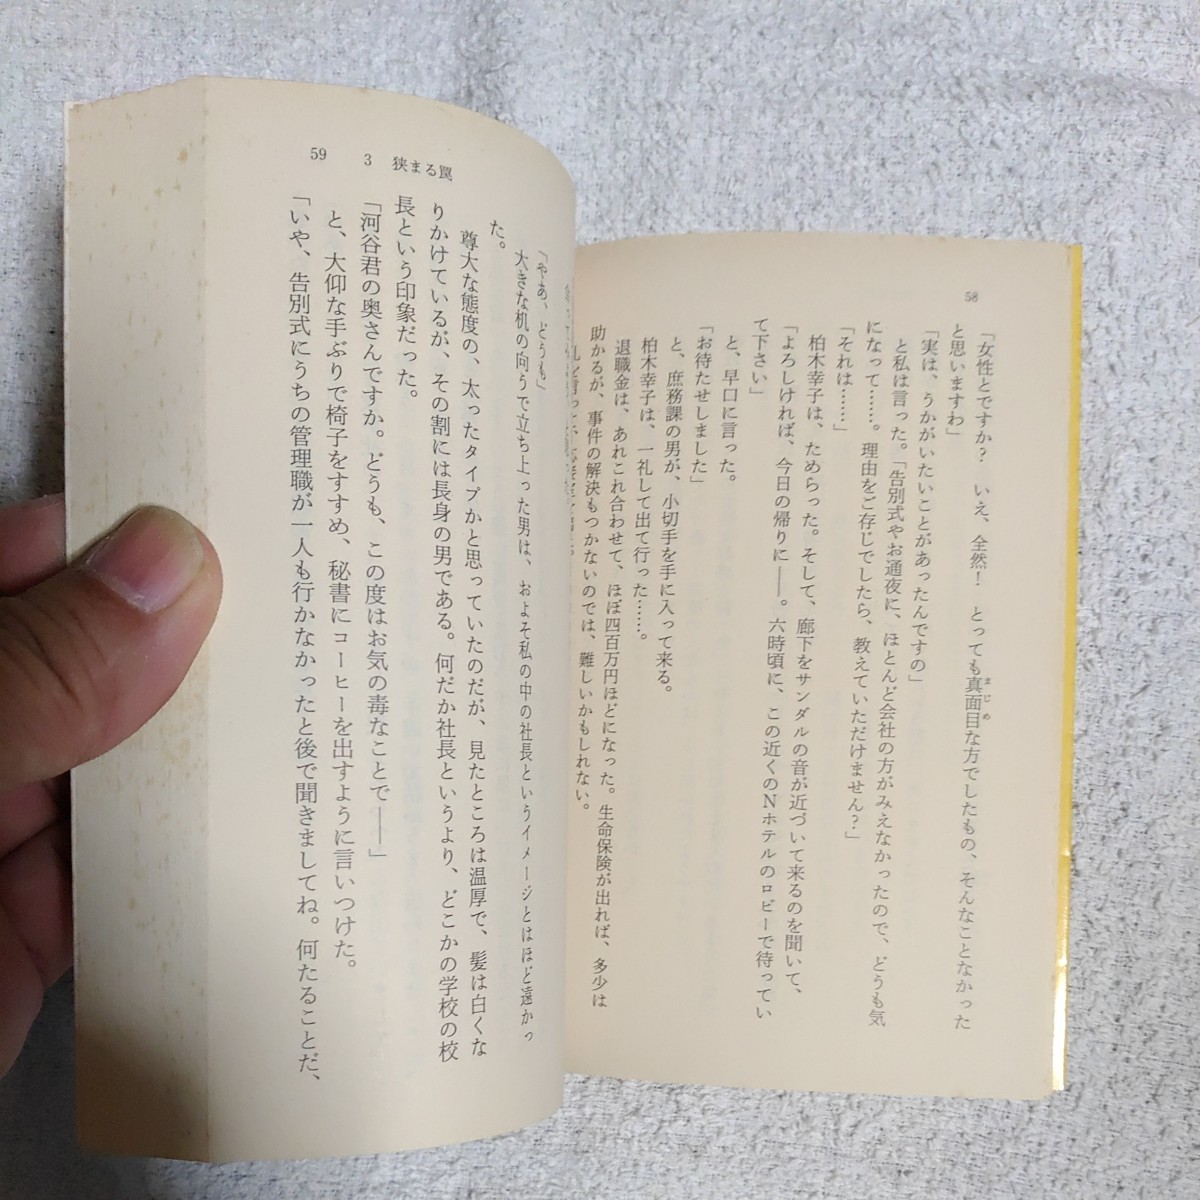 58
「女性とですか？　いえ、全然！　とっても真面目な方でしたもの、そんなことなかった
まじめ
と思いますわ」
「実は、うかがいたいことがあったんですの」
と私は言った。「告別式やお通夜に、ほとんど会社の方がみえなかったので、どうも気
になって……。理由をご存じでしたら、教えていただけません？」
「それは……」
柏木幸子は、ためらった。そして、廊下をサンダルの音が近づいて来るのを聞いて、
「よろしければ、今日の帰りに――。六時頃に、この近くのＮホテルのロビーで待ってい
て下さい」
と、早口に言った。
「お待たせしました」
と、庶務課の男が、小切手を手に入って来る。
柏木幸子は、一礼して出て行った……。
退職金は、あれこれ合わせて、ほぼ四百万円ほどになった。生命保険が出れば、多少は
助かるが、事件の解決もつかないのでは、難しいかもしれない。
59　3　狭まる罠
「やあ、どうも」
大きな机の向うで立ち上った男は、およそ私の中の社長というイメージとはほど遠かっ
た。
尊大な態度の、太ったタイプかと思っていたのだが、見たところは温厚で、髪は白くな
りかけているが、その割には長身の男である。何だか社長というより、どこかの学校の校
長という印象だった。
「河谷君の奥さんですか。どうも、この度はお気の毒なことで――」
と、大仰な手ぶりで椅子をすすめ、秘書にコーヒーを出すように言いつけた。
「いや、告別式にうちの管理職が一人も行かなかったと後で聞きましてね。何たることだ、